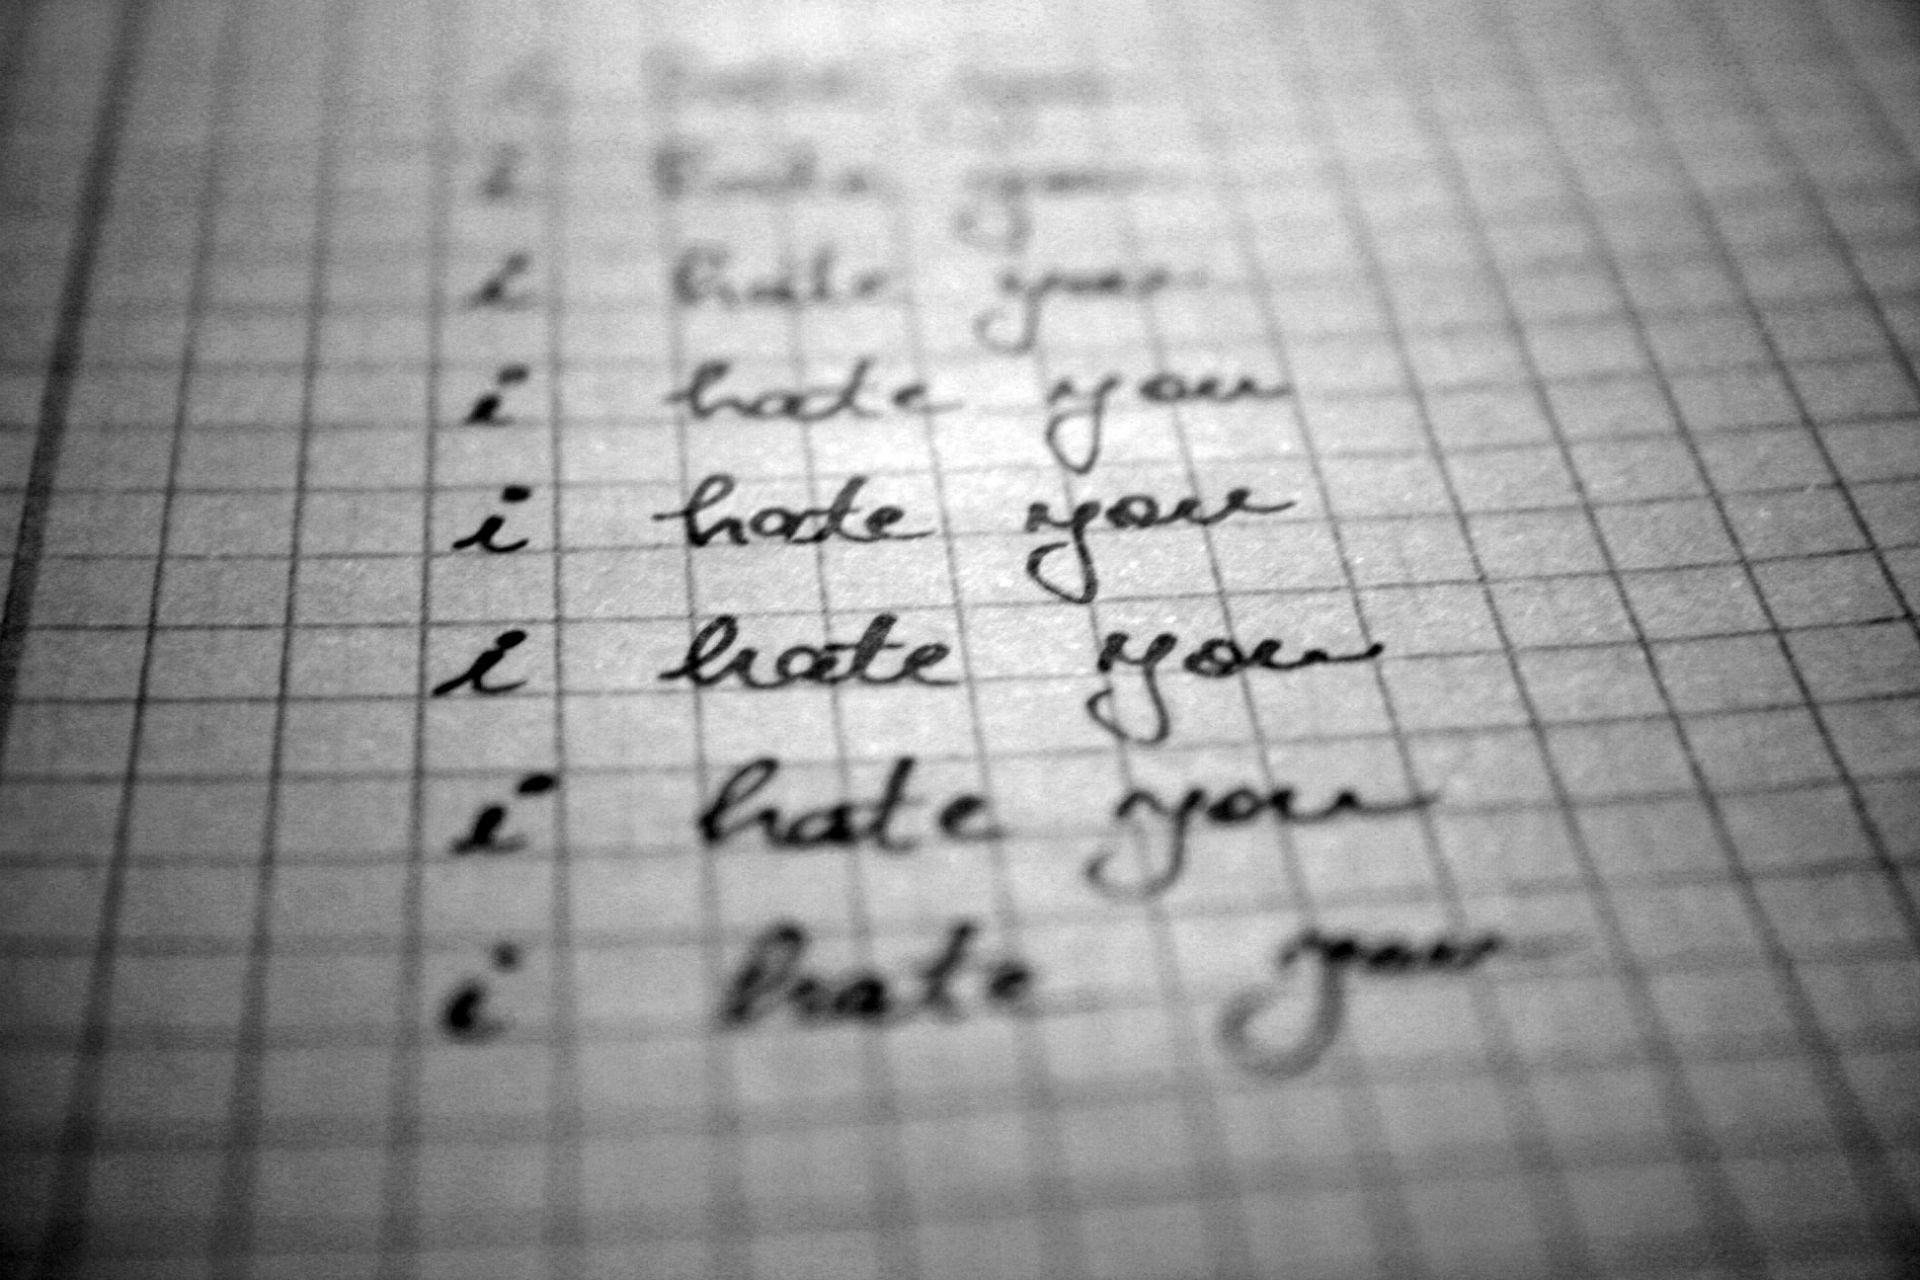 i hate you
i hate you
i hate you
i hate you
i hate you
i hate you
i hate you